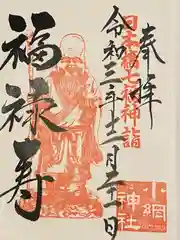 奉拝
日本橋七福神詣
令和三年十二月二十一日
福禄寿
小網神社